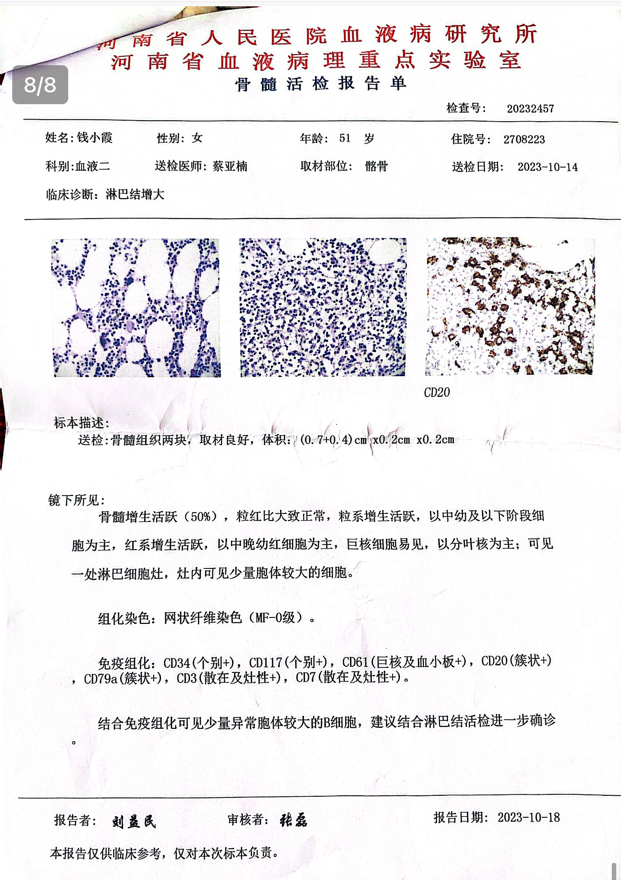 河南省人民医院血液病研究所
河南省血液病理重点实验室
骨髓活检报告单
8/8
检查号: 20232457
姓名:钱小霞 性别: 女 年龄: 51 岁 住院号: 2708223
科别:血液二 送检医师: 蔡亚楠 取材部位: 髂骨 送检日期: 2023-10-14
临床诊断: 淋巴结增大
CD20
标本描述:
送检:骨髓组织两块, 取材良好, 体积: (0.7+0.4)cm x0.2cm x0.2cm
镜下所见:
骨髓增生活跃（50%）, 粒红比大致正常, 粒系增生活跃, 以中幼及以下阶段细
胞为主, 红系增生活跃, 以中晚幼红细胞为主, 巨核细胞易见, 以分叶核为主; 可见
一处淋巴细胞灶, 灶内可见少量胞体较大的细胞。
组化染色: 网状纤维染色（MF-0级）。
免疫组化: CD34(个别+), CD117(个别+), CD61(巨核及血小板+), CD20(簇状+)
, CD79a(簇状+), CD3(散在及灶性+), CD7(散在及灶性+)。
结合免疫组化可见少量异常胞体较大的B细胞, 建议结合淋巴结活检进一步确诊
。
报告者: 刘益民 审核者: 张磊 报告日期: 2023-10-18
本报告仅供临床参考, 仅对本次标本负责。